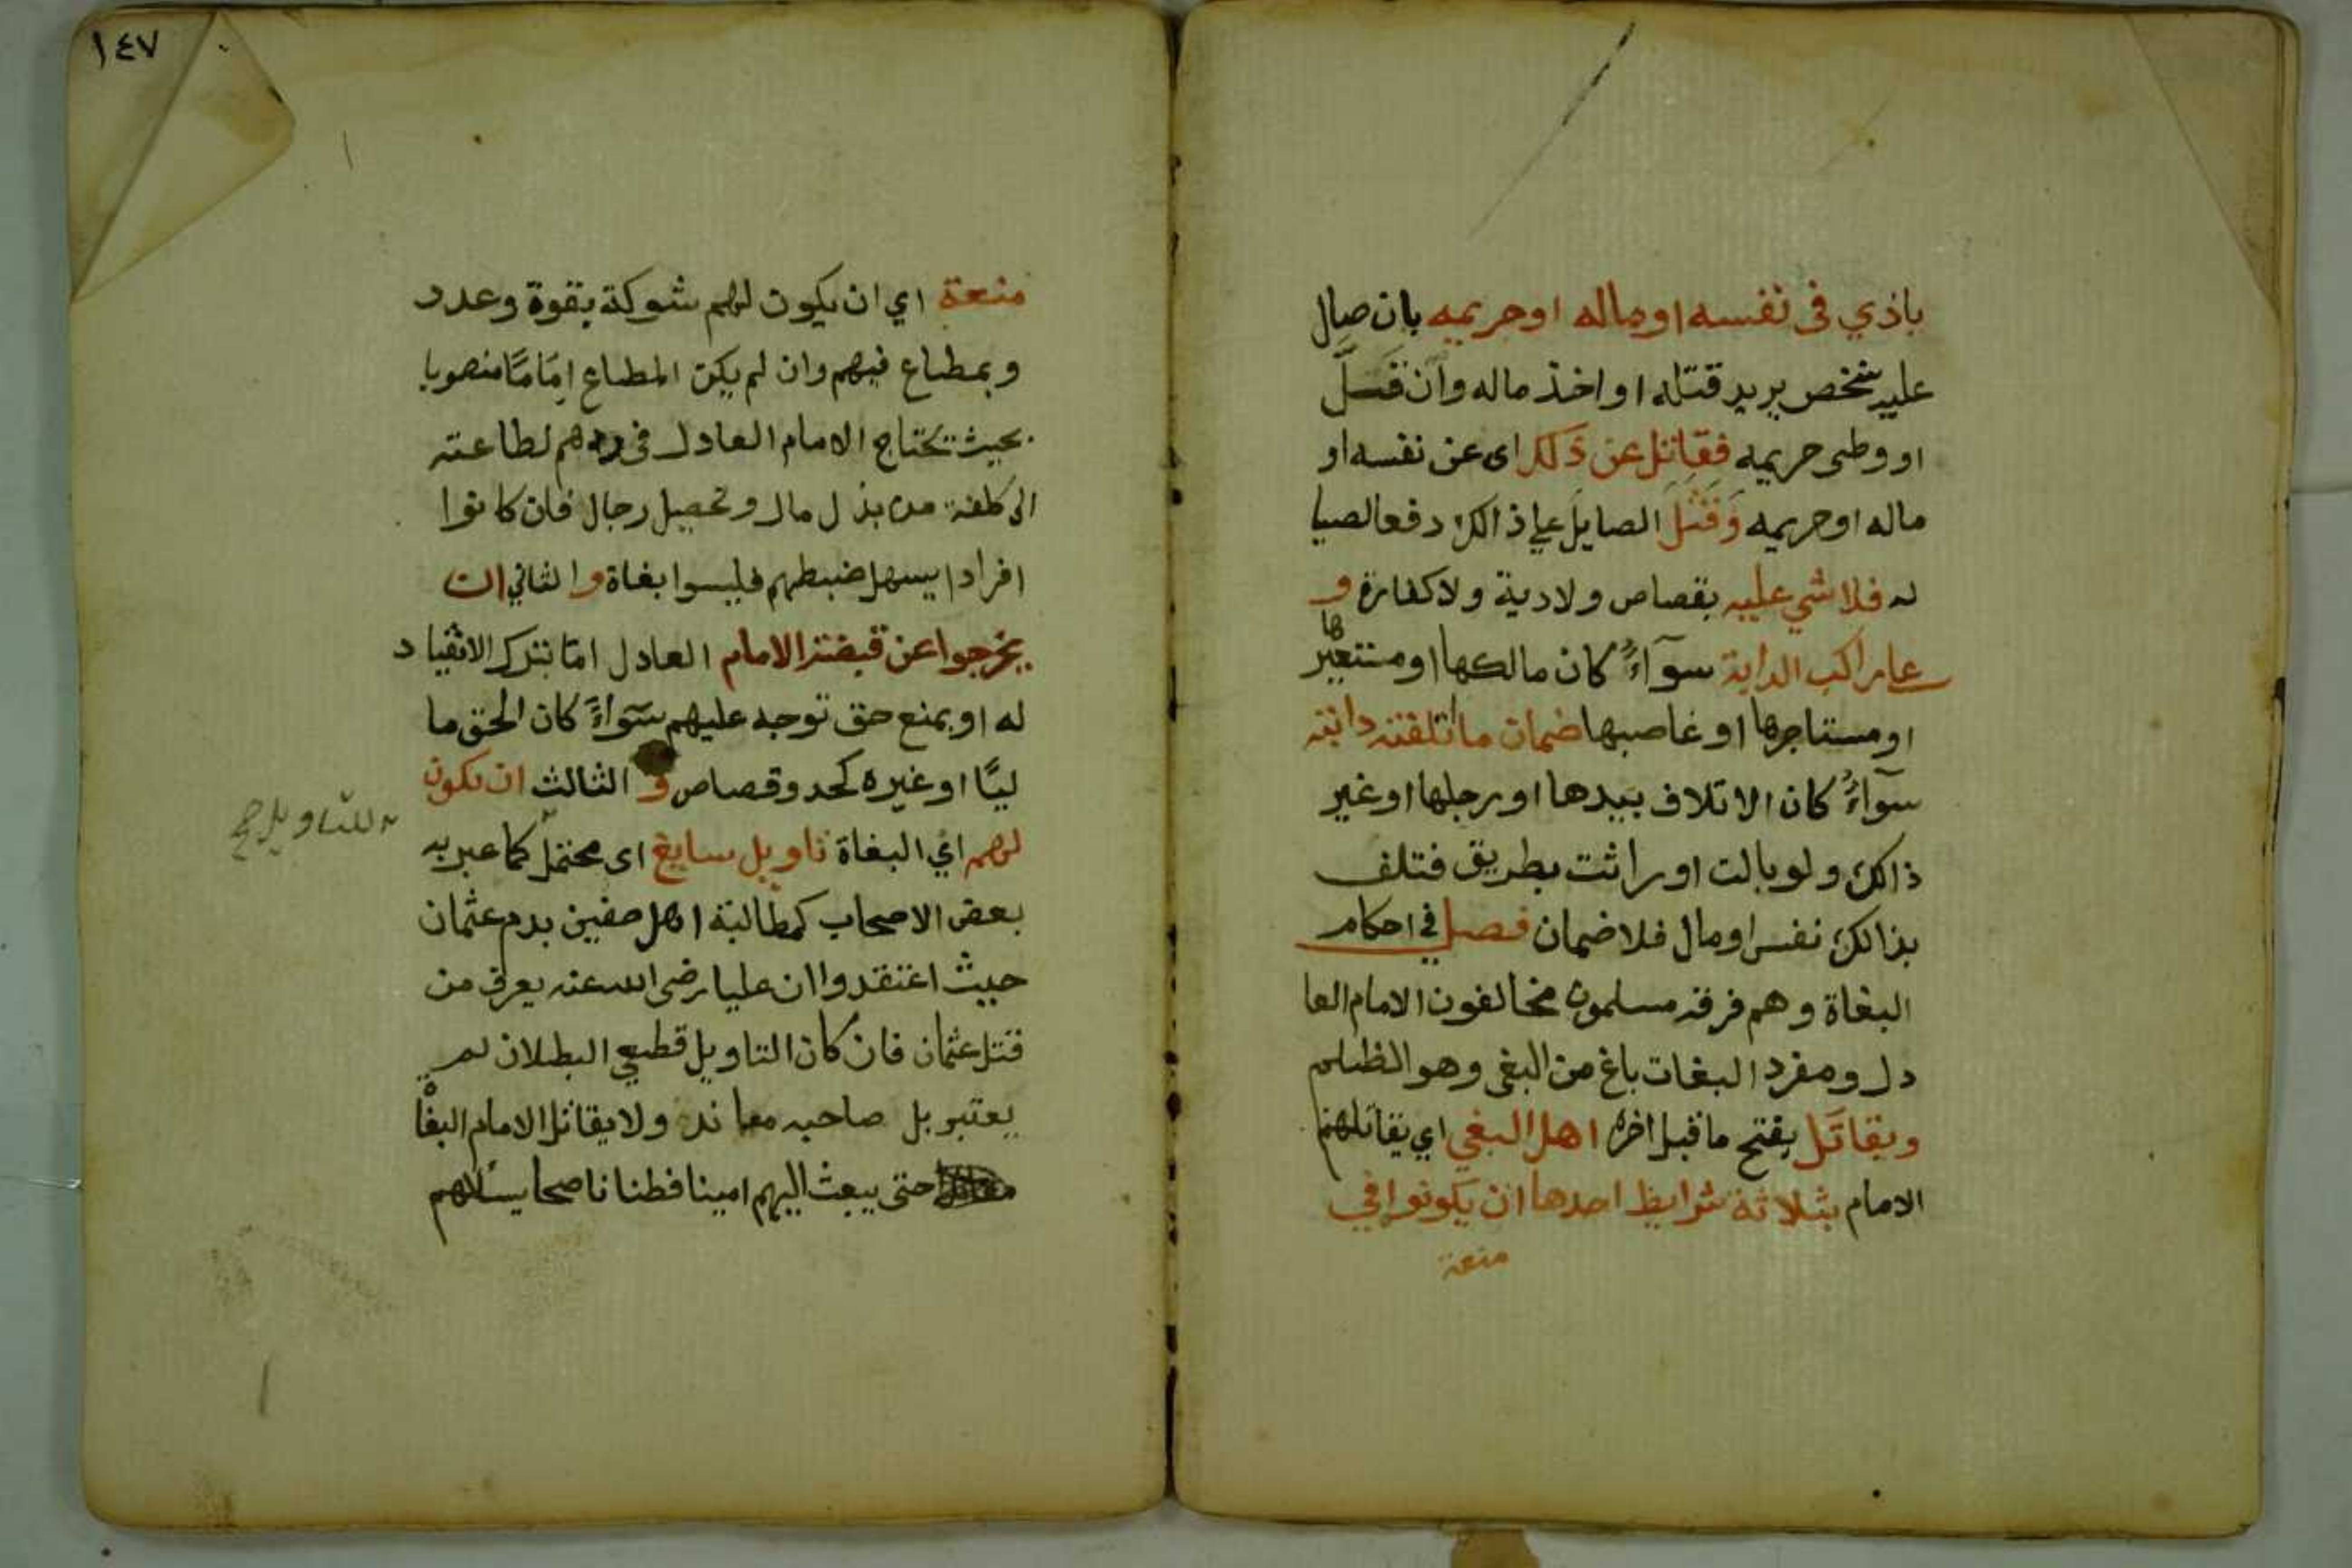 باذي في نفسه او ماله او حريمه بان صال
عليه شخص يريد قتله او اخذ ماله وان قَلَّ
او وطى حريمه فقاتل عن ذَلك اى عن نفسه او
ماله او حريمه وَقَتَلَ الصايلَ علي ذالك دفعا لصيا
له فلا شي عليه بقصاص ولا دية ولا كفارة و
علي راكب الدابة سوآءٌ كان مالكها او مستعيرها
او مستاجرها او غاصبها ضمان ما اتلفته دابته
سوآءٌ كان الاتلاف بيدها او رجلها او غير
ذالك ولو بالت او راثت بطريق فتلف
بذالك نفس او مال فلا ضمان فصل في احكام
البغاة وهم فرقة مسلمون مخالفون الامام العا
دل ومفرد البغات باغ من البغى وهو الظلم
ويقاتَل بفتح ما قبل اخره اهل البغي اي يقاتلهم
الامام بثلاثة شرايط احدها ان يكونوا في
منعة
١٤٧
منعة اي ان يكون لهم شوكة بقوة وعدد
وبمطاع فيهم وان لم يكن المطاع اِمَامًا منصوبا
بحيث تحتاج الامام العادل فى ردهم لطاعته
الى كلفة من بذل مال وتحصيل رجال فان كانوا
افرادا يسهل ضبطهم فليسوا بغاة والثاني ان
يخرجوا عن قبضة الامام العادل امّا بترك الانقياد
له او بمنع حق توجه عليهم سَوآءً كان الحق ما
ليًا او غيره كحد وقصاص و الثالث ان يكون
لهم اي البغاة تاويل سايغ اى محتمل كما عبر به
بعض الاصحاب كمطالبة اهل صفين بدم عثمان
حيث اعتقدوا ان عليا رضى الله عنه يعرف من
قتل عثمان فان كان التاويل قطعي البطلان لم
يعتبر بل صاحبه معاند ولا يقاتل الامام البغا
حتى يبعث اليهم امينا فطنا ناصحا يسئلاهم
للتاويل صح